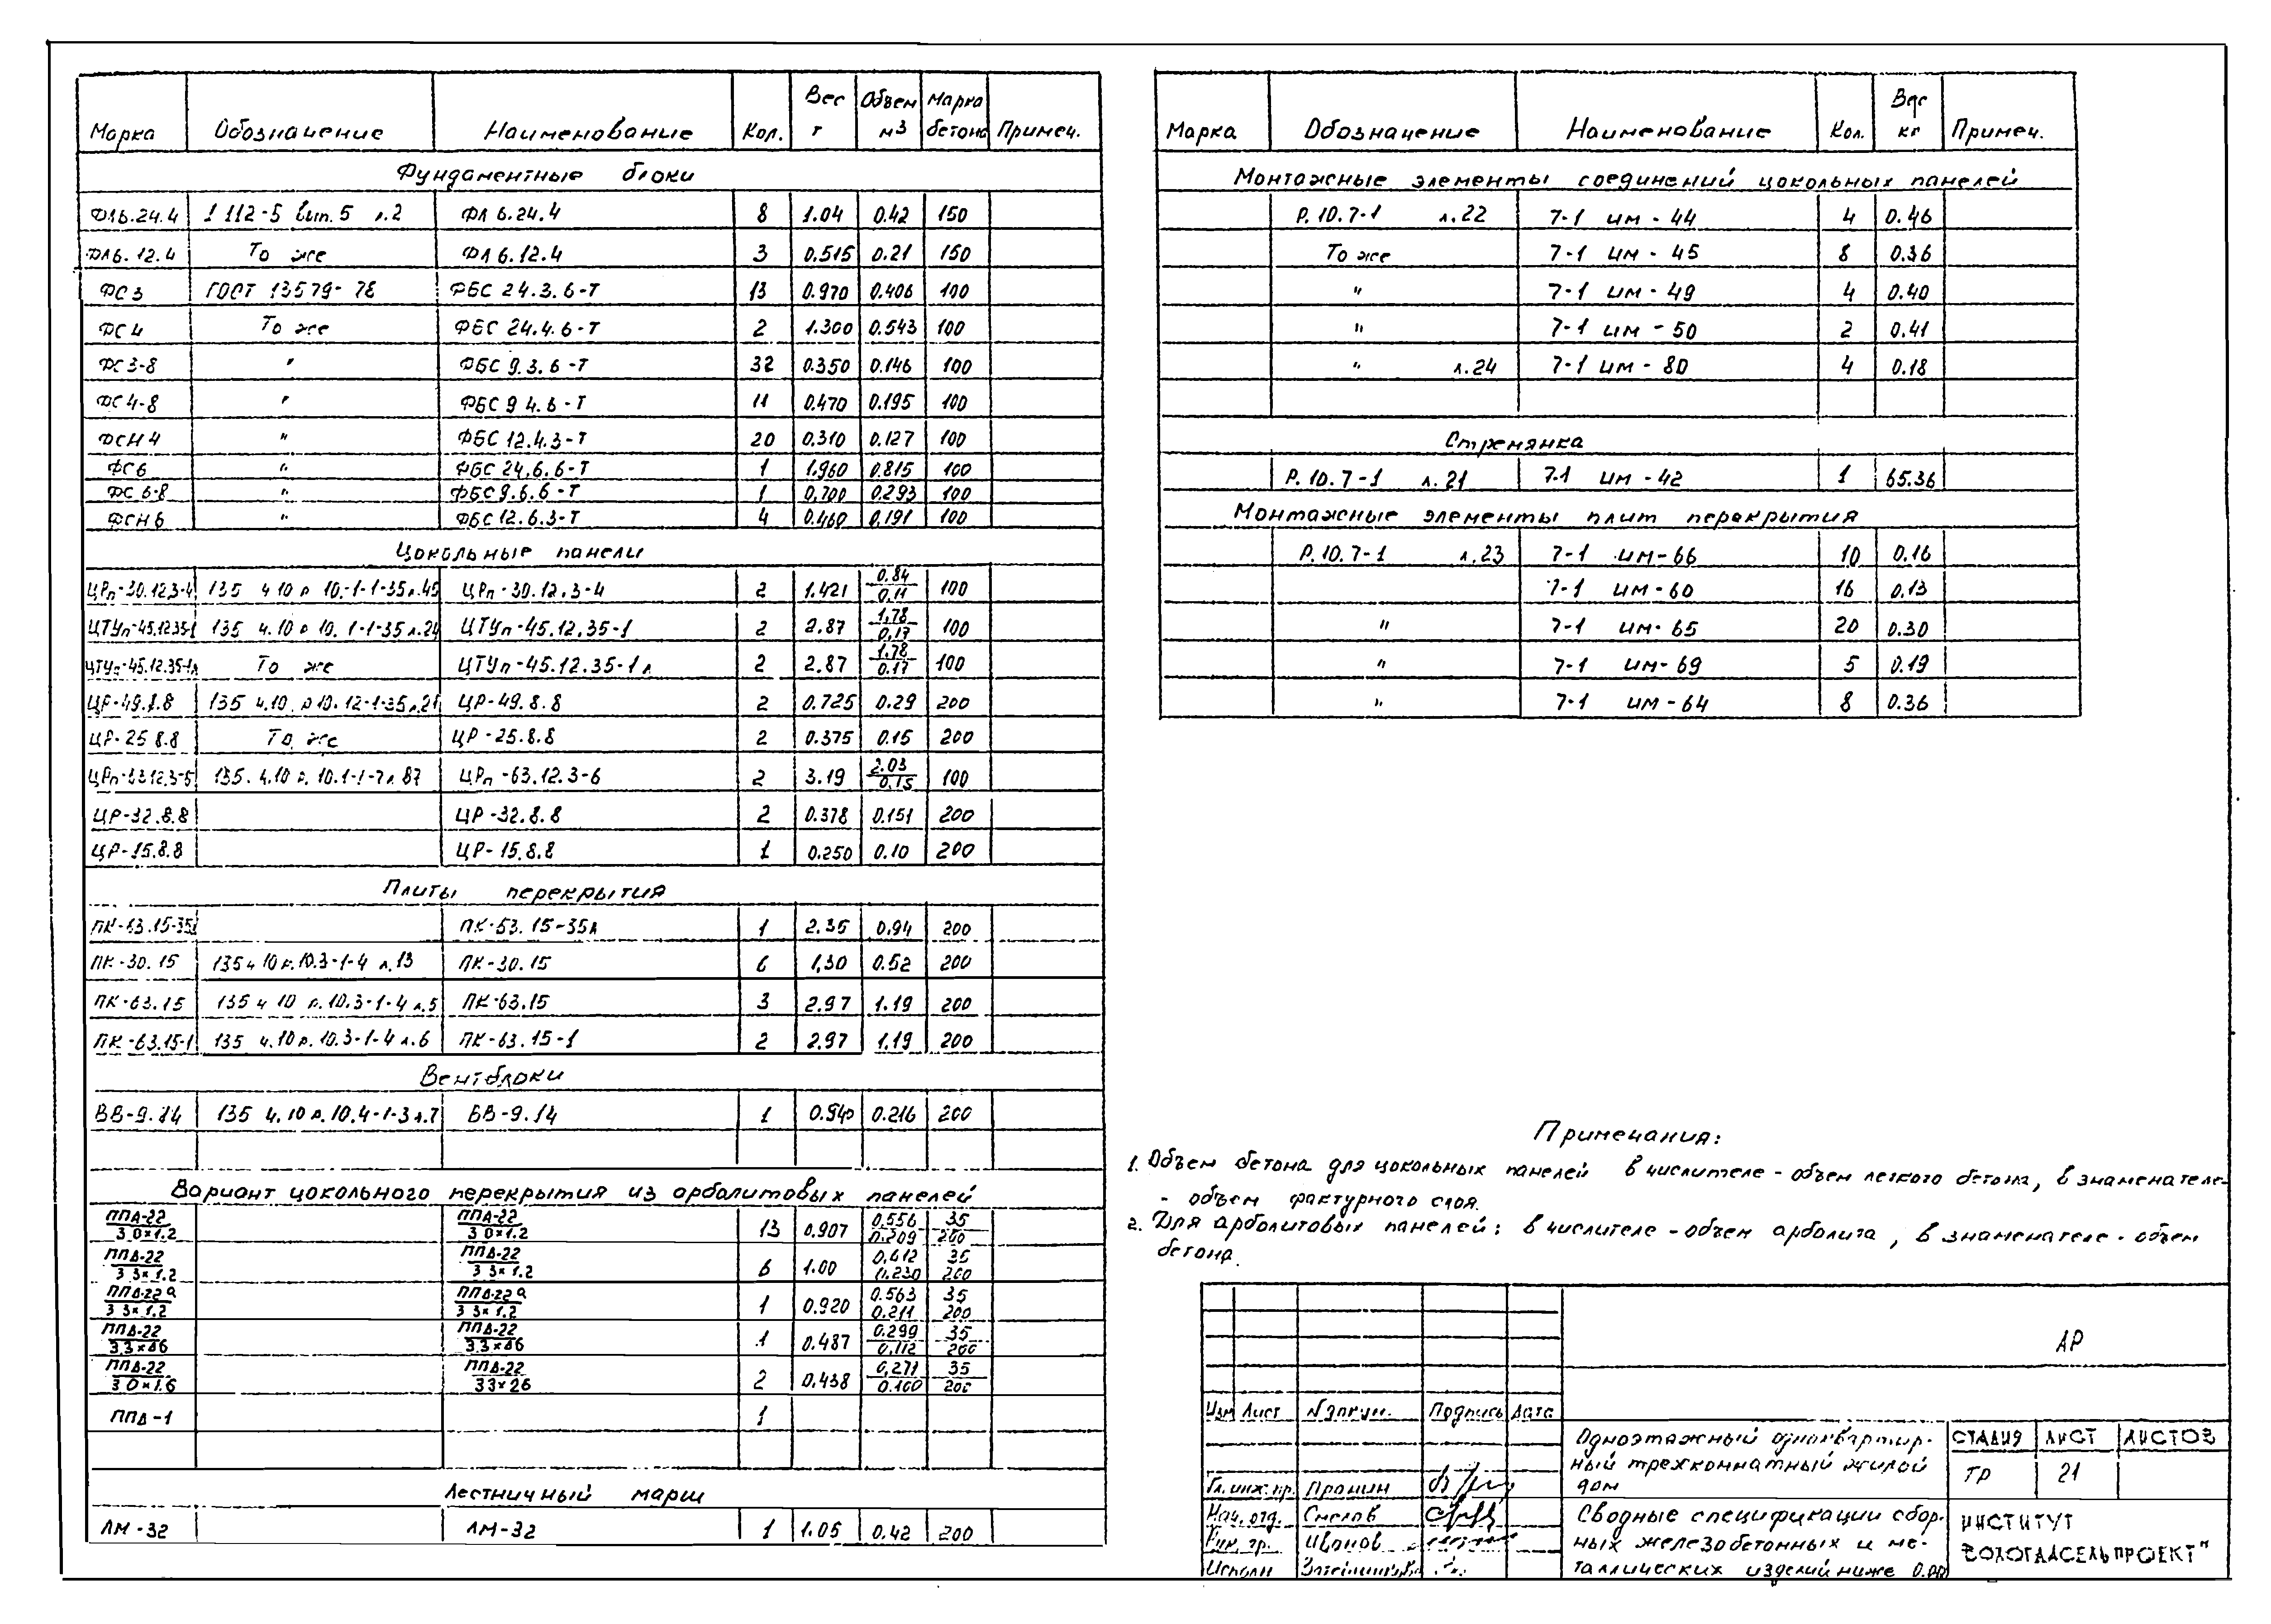 Марка Обозначение Наименование Кол. Вес т Объем м3 Марка бетона Примеч.
Фундаментные блоки
ФЛ6.24.4 1 112-5 вып. 5 л.2 ФЛ 6.24.4 8 1.04 0.42 150
ФЛ6.12.4 То же ФЛ 6.12.4 3 0.515 0.21 150
ФС3 ГОСТ 13579-78 ФБС 24.3.6-Т 13 0.970 0.406 100
ФС4 То же ФБС 24.4.6-Т 2 1.300 0.543 100
ФС3-8 " ФБС 9.3.6-Т 32 0.350 0.146 100
ФС4-8 " ФБС 9 4.6-Т 11 0.470 0.195 100
ФСН4 " ФБС 12.4.3-Т 20 0.310 0.127 100
ФС6 " ФБС 24.6.6-Т 1 1.960 0.815 100
ФС 6-8 " ФБС 9.6.6-Т 1 0.700 0.293 100
ФСН6 " ФБС 12.6.3-Т 4 0.460 0.191 100
Цокольные панели
ЦРп-30.12.3-4 135 4 10 р 10.-1-1-35 л.45 ЦРп-30.12.3-4 2 1.421 0.84/0.11 100
ЦТУп-45.12.35-1 135 4.10 р 10. 1-1-35 л.24 ЦТУп-45.12.35-1 2 2.87 1.78/0.17 100
ЦТУп-45.12.35-1л То же ЦТУп-45.12.35-1л 2 2.87 1.78/0.17 100
ЦР-49.8.8 135 4.10 р 10. 12-1-35 л.21 ЦР-49.8.8 2 0.725 0.29 200
ЦР-25 8.8 То же ЦР-25.8.8 2 0.375 0.15 200
ЦРп-63 12.3-6 135. 4.10 р. 10.1-1-7 л 87 ЦРп-63.12.3-6 2 3.19 2.03/0.15 100
ЦР-32.8.8 ЦР-32.8.8 2 0.378 0.151 200
ЦР-15.8.8 ЦР-15.8.8 1 0.250 0.10 200
Плиты перекрытия
ПК-63.15-35л ПК-63.15-35л 1 2.35 0.94 200
ПК-30.15 135 ч 10 р.10.3-1-4 л.13 ПК-30.15 6 1,30 0.52 200
ПК-63.15 135 ч 10 р.10.3-1-4 л.5 ПК-63.15 3 2.97 1.19 200
ПК-63.15-1 135 ч.10 р.10.3-1-4 л.6 ПК-63.15-1 2 2.97 1.19 200
Вентблоки
БВ-9.14 135 4.10 р.10.4-1-3 л.7 БВ-9.14 1 0.540 0.216 200
Вариант цокольного перекрытия из арболитовых панелей
ППА-22/3 0×1.2 ППА-22/3 0×1.2 13 0.907 0.556/0.209 35/200
ППА-22/3 3×1.2 ППА-22/3 3×1.2 6 1.00 0.612/0.230 35/200
ППА-22а/3 3×1.2 ППА-22а/3 3×1.2 1 0.920 0.563/0.211 35/200
ППА-22/3.3×06 ППА-22/3.3×06 1 0.487 0.299/0.112 35/200
ППА-22/3 0×1.6 ППА-22/33×26 2 0.438 0.271/0.100 35/200
ППА-1 1
Лестничный марш
ЛМ-32 ЛМ-32 1 1.05 0.42 200
Марка Обозначение Наименование Кол. Вес кг Примеч.
Монтажные элементы соединений цокольных панелей
Р.10.7-1 л.22 7-1 им-44 4 0.46
То же 7-1 им-45 8 0.36
" 7-1 им-49 4 0.40
" 7-1 им-50 2 0.41
" л.24 7-1 им-80 4 0.18
Стремянка
Р.10.7-1 л.21 7-1 им-42 1 65.36
Монтажные элементы плит перекрытия
Р.10.7-1 л.23 7-1 им-66 10 0.16
7-1 им-60 16 0.13
" 7-1 им-65 20 0.30
" 7-1 им-69 5 0.19
" 7-1 им-64 8 0.36
Примечания:
1. Объем бетона для цокольных панелей в числителе - объем легкого бетона, в знаменателе-
- объем фактурного слоя.
2. Для арболитовых панелей: в числителе - объем арболита, в знаменателе - объем
бетона.
АР
Изм Лист № докум. Подпись Дата
Одноэтажный одноквартир-
ный трехкомнатный жилой
дом
СТАДИЯ ЛИСТ ЛИСТОВ
ТР 21
Гл. инж. пр. Пронин
Нач. отд. Смелов
Рук. гр. Иванов
Исполн
Сводные спецификации сбор-
ных железобетонных и ме-
таллических изделий ниже 0.00
ИНСТИТУТ
ВОЛОГДАСЕЛЬПРОЕКТ"